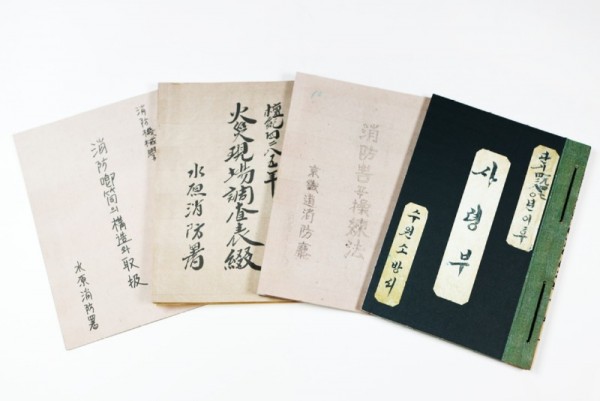 消防機械學
消防喞筒의構造와取扱
水原消防署
檀紀四二八五年
火災現場調査表綴
水原消防署
消防器具操練法
京畿道消防
년이후
사령부
수원소방서